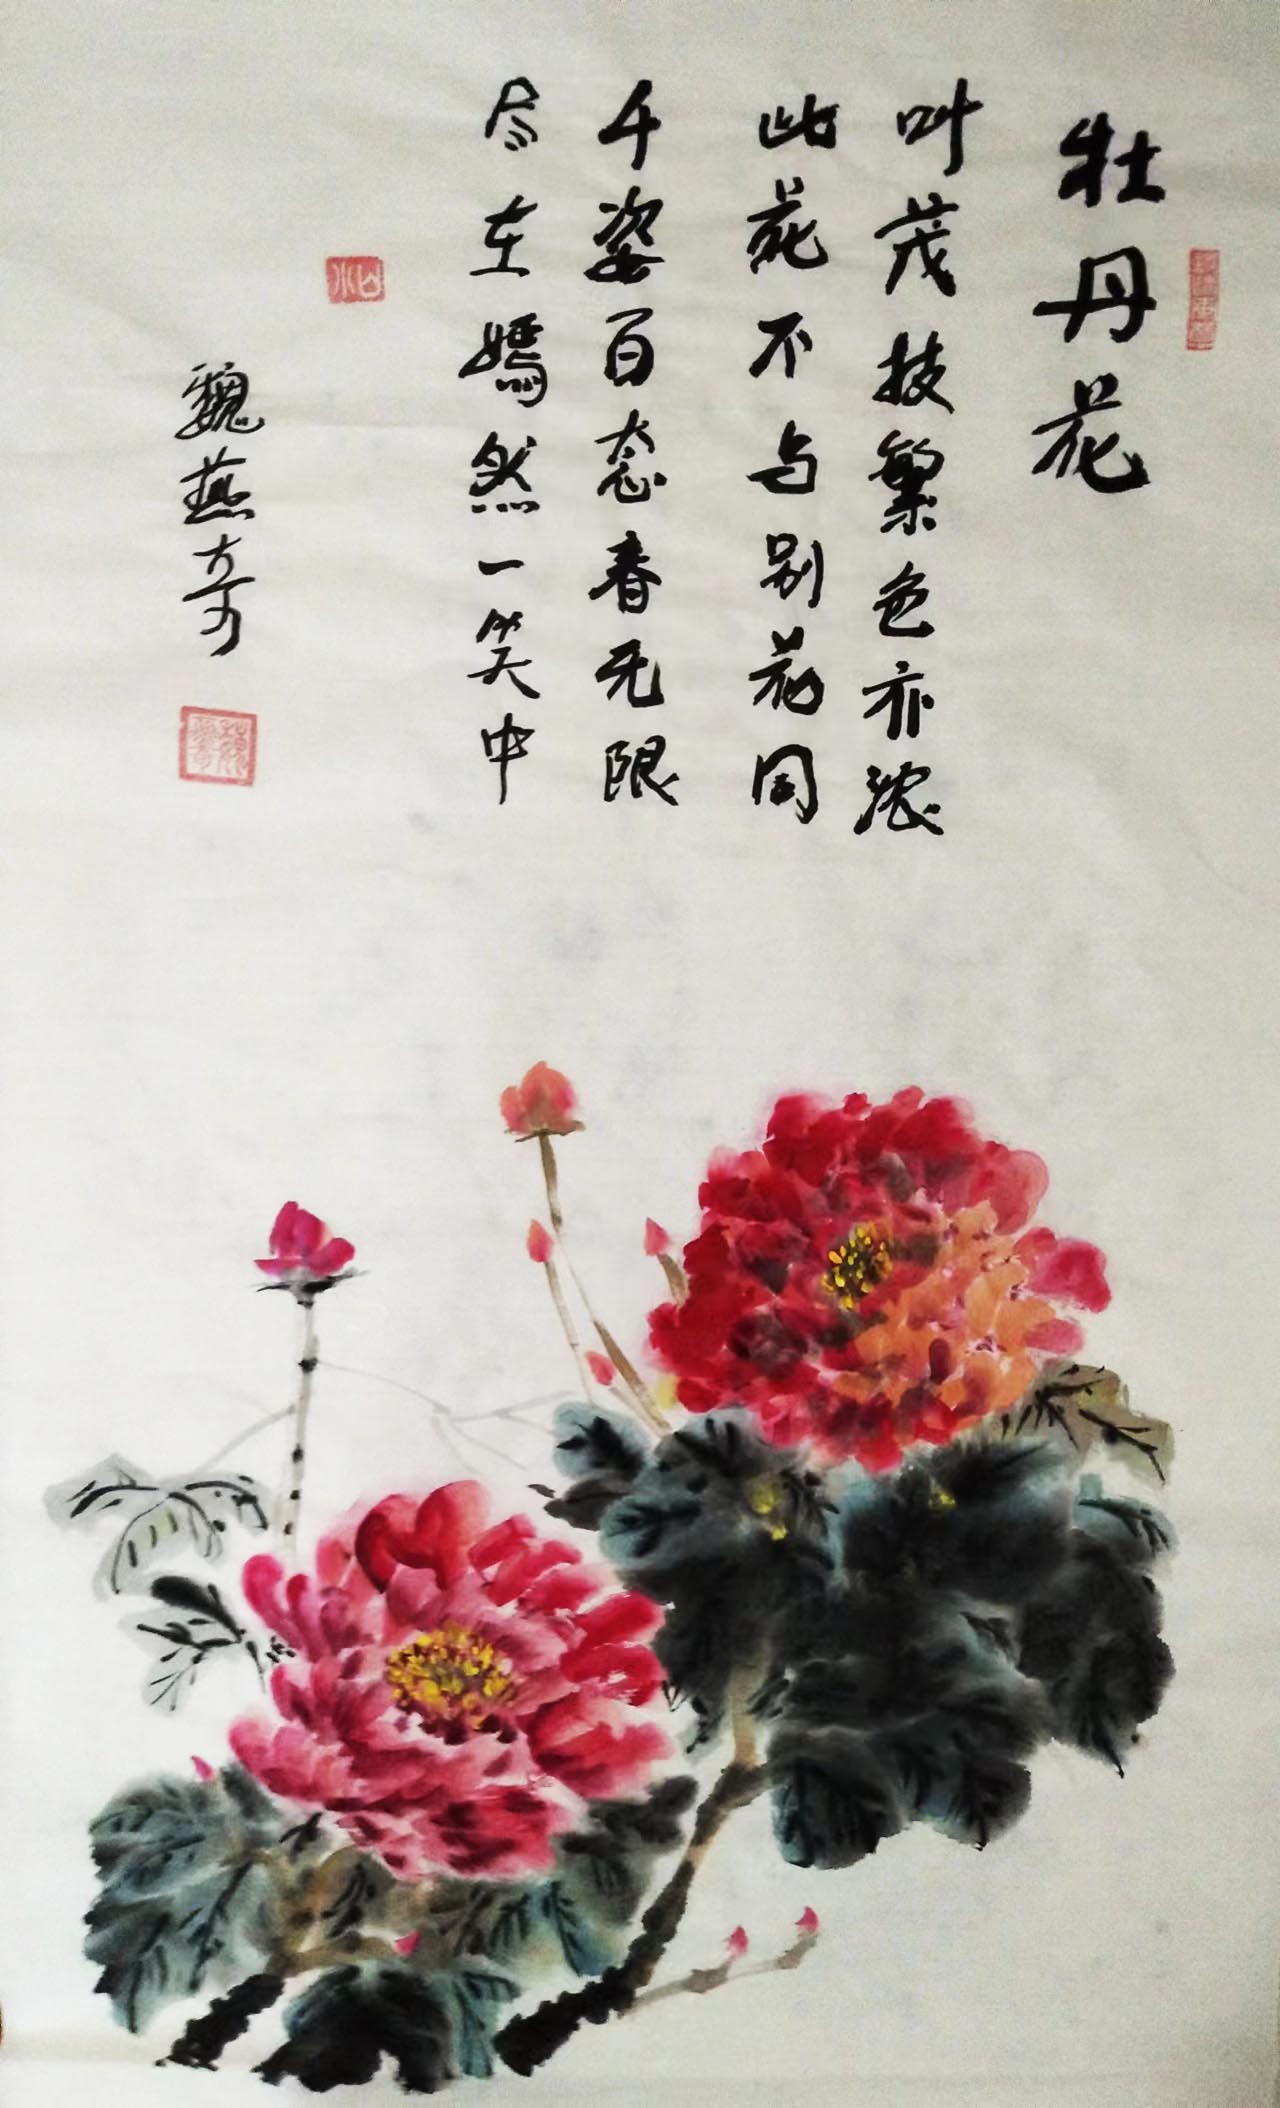 牡丹花
叶茂技繁色亦浓
此花不与别花同
千姿百态春无限
尽在嫣然一笑中
魏燕奇